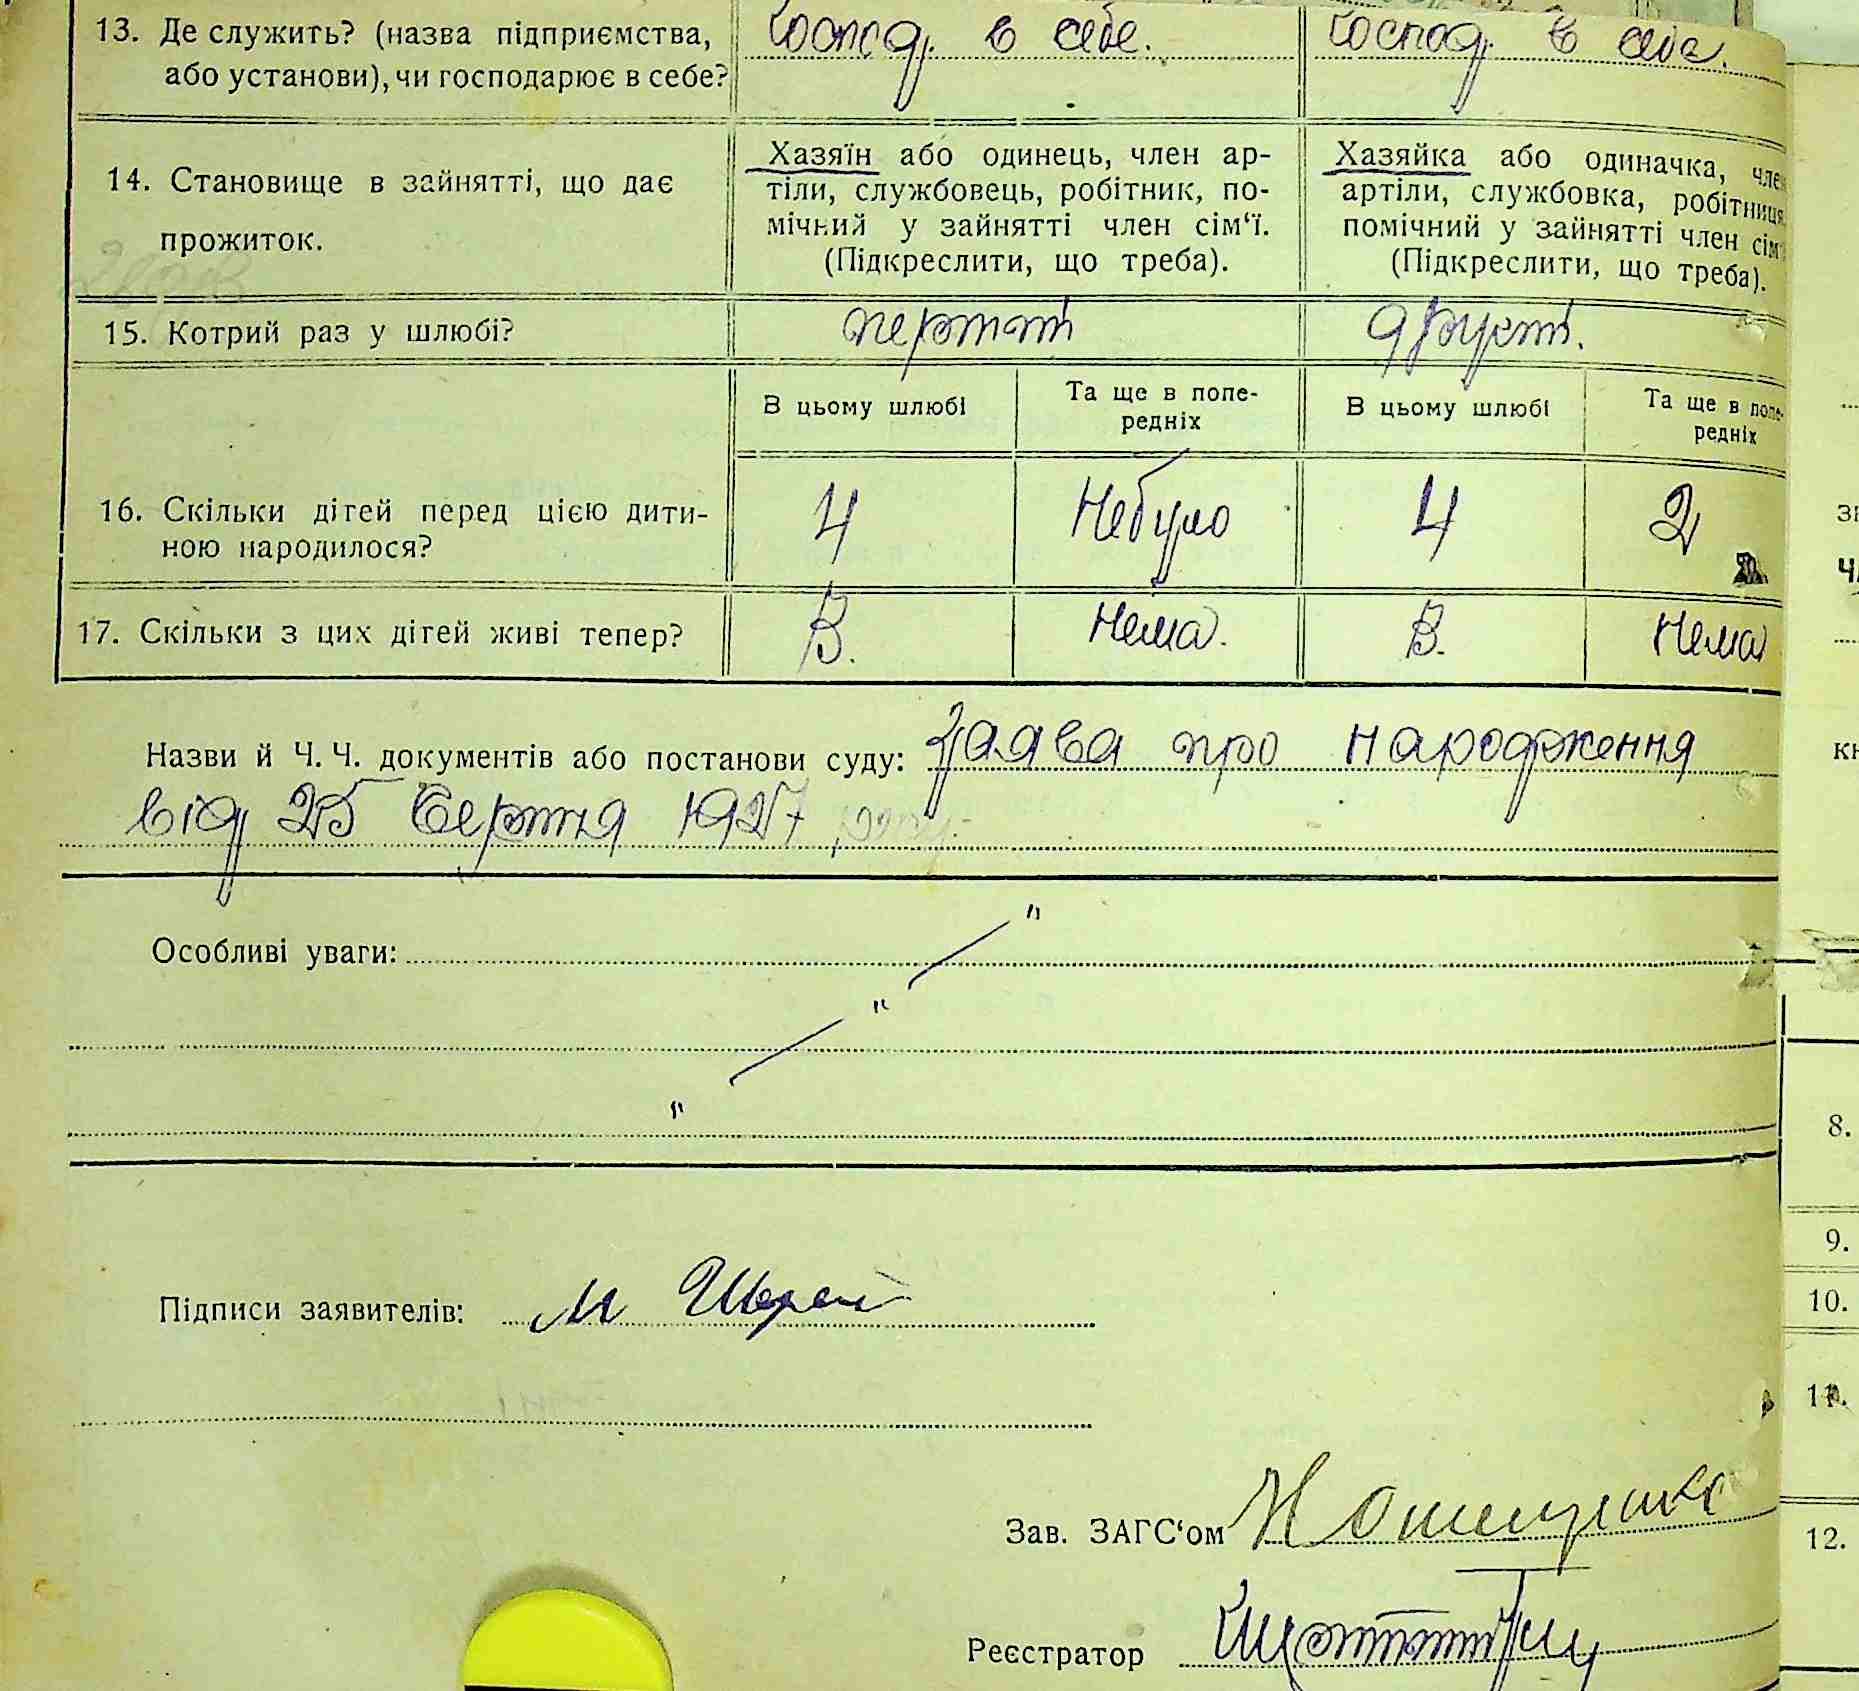 13. Де служить? (назва підприємства, Господ. в себе. Господ. в себе.
або установи), чи господарює в себе?
14. Становище в зайнятті, що дає прожиток.
Хазяїн або одинець, член ар-
тіли, службовець, робітник, по-
мічний у зайнятті член сім‘ї.
(Підкреслити, що треба).
Хазяйка або одиначка, член
артіли, службовка, робітниця,
помічний у зайнятті член сім‘ї
(Підкреслити, що треба).
15. Котрий раз у шлюбі? перший другий.
В цьому шлюбі Та ще в попе-редніх В цьому шлюбі Та ще в попе-редніх
16. Скільки дітей перед цією дити- 4 Небуло 4 2
ною народилося?
17. Скільки з цих дітей живі тепер? В. Нема. В. Нема
Назви й Ч. Ч. документів або постанови суду: Заява про народження
від 25 Серпня 1927 року.
Особливі уваги: "
"
"
Підписи заявителів: М
Зав. ЗАГС‘ом
Реєстратор
8.
9.
10.
11.
12.